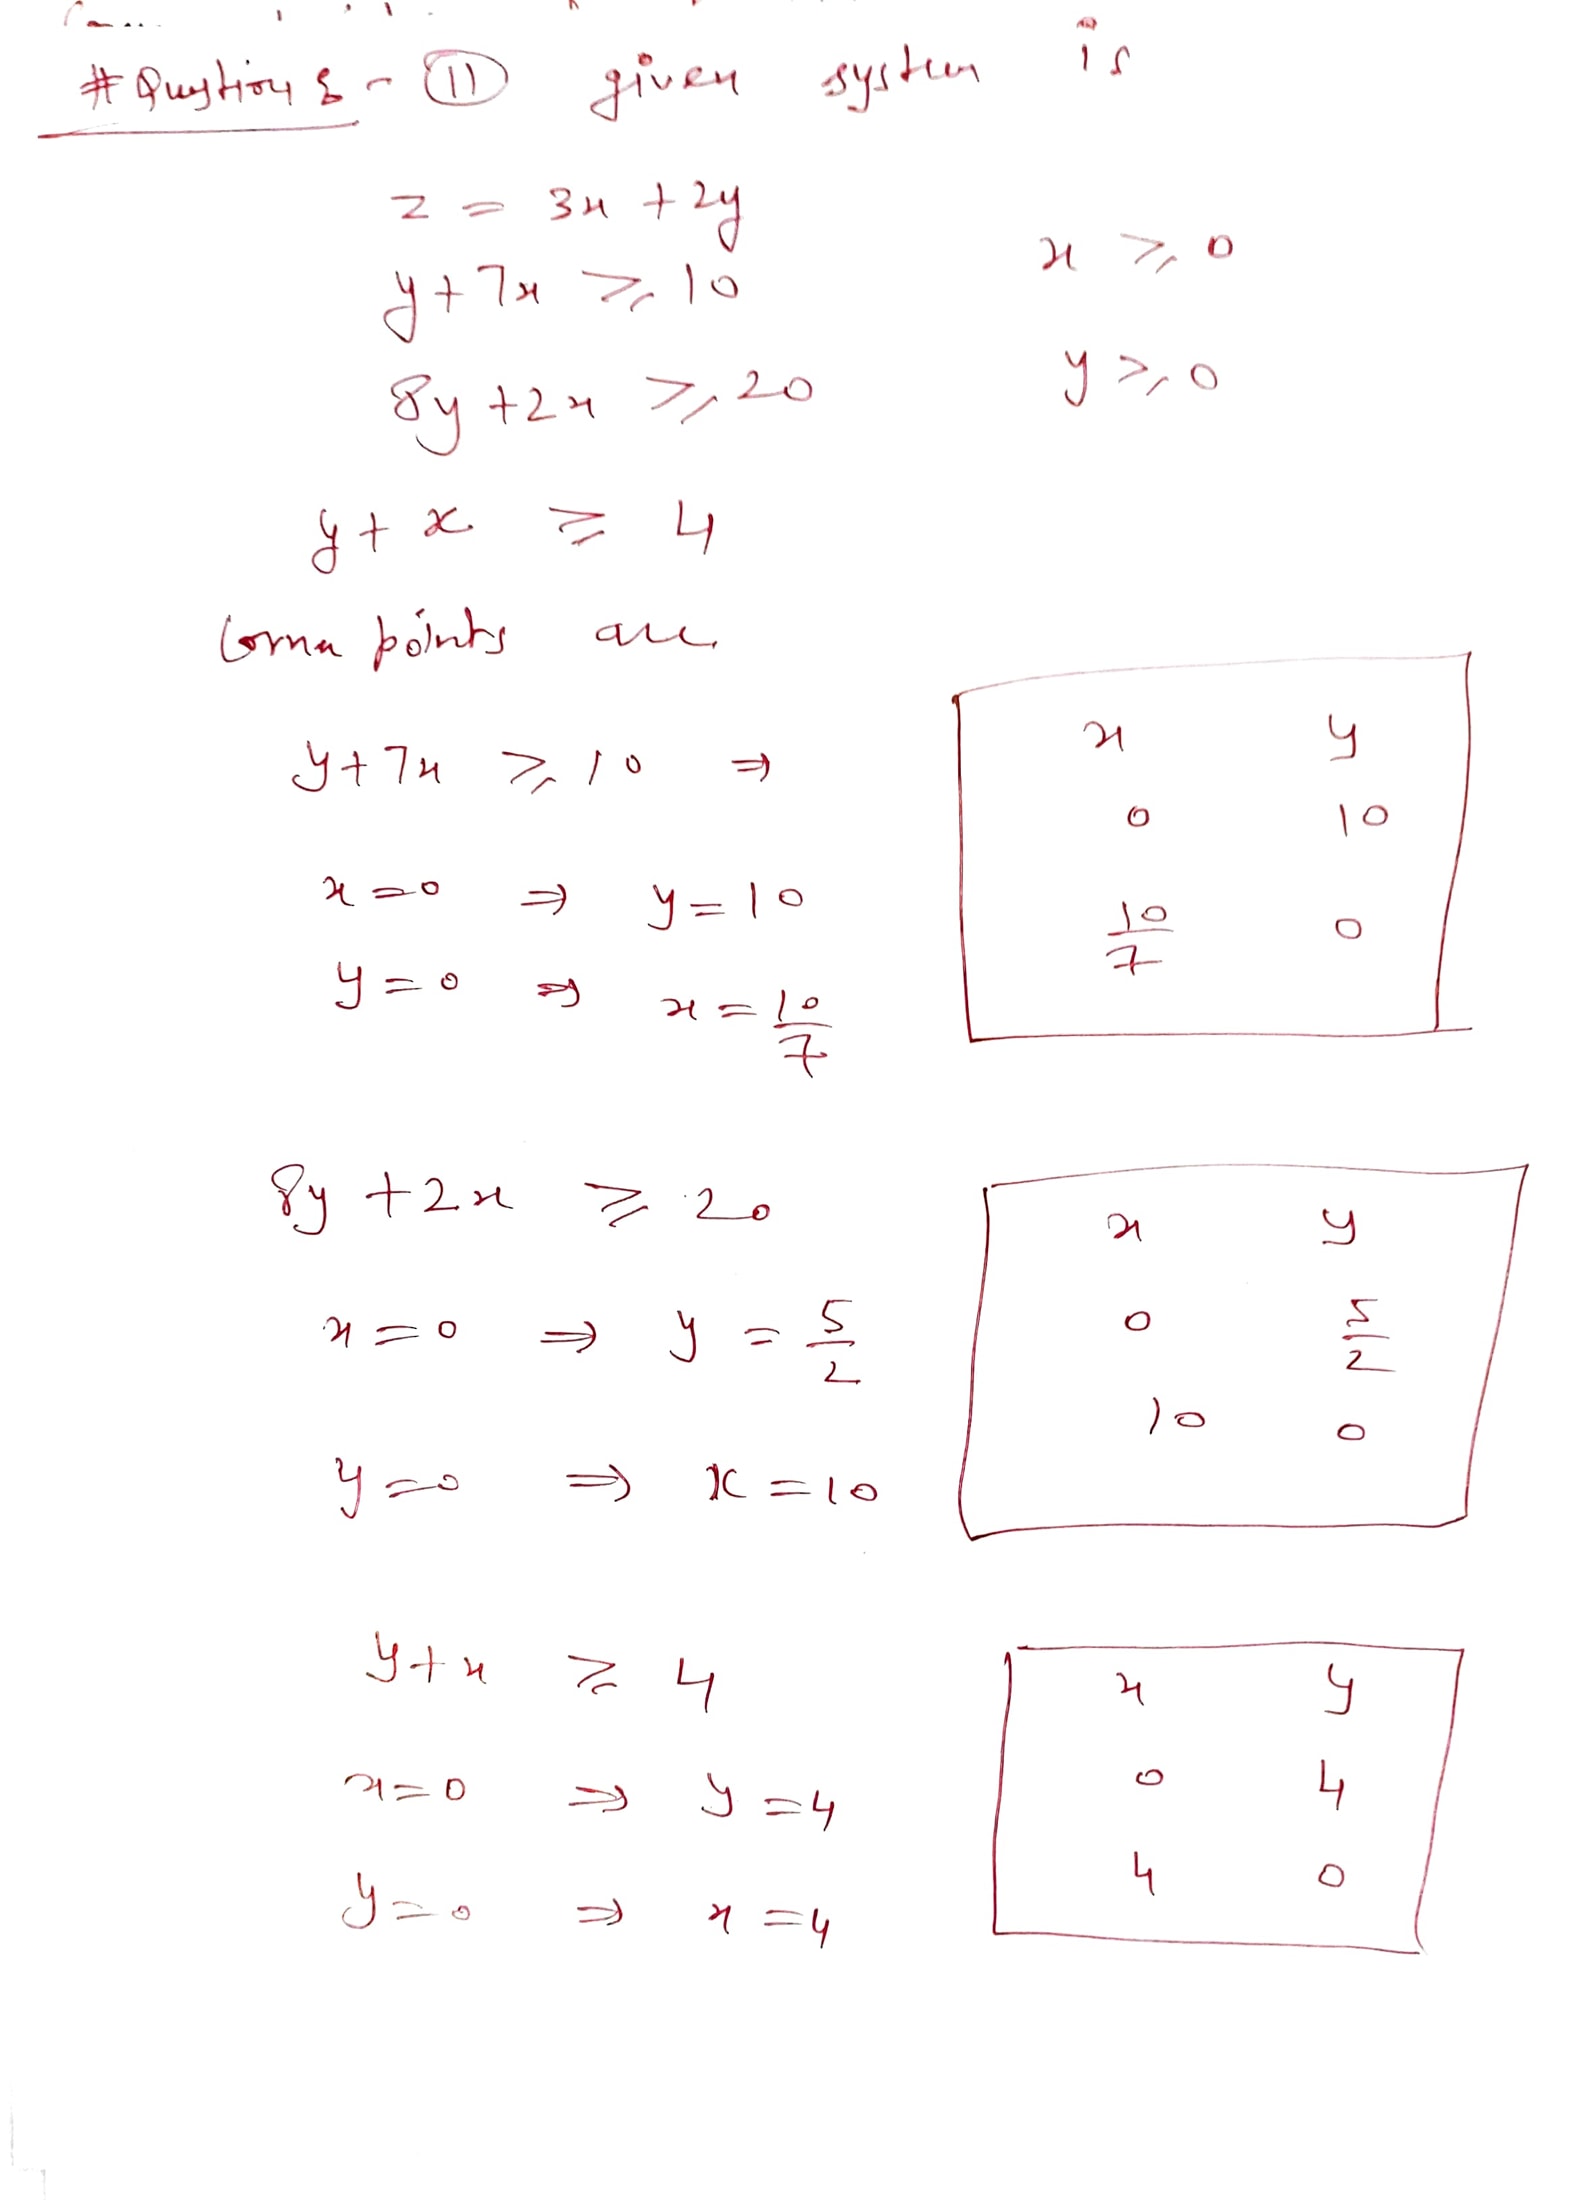 # Question 8 - (11) given system is
z = 3x + 2y
y + 7x ≥ 10 x ≥ 0
8y + 2x ≥ 20 y ≥ 0
y + x ≥ 4
Corner points are
y + 7x ≥ 10 ⇒
x = 0 ⇒ y = 10
y = 0 ⇒ x = 10/7
x y
0 10
10/7 0
8y + 2x ≥ 20
x = 0 ⇒ y = 5/2
y = 0 ⇒ x = 10
x y
0 5/2
10 0
y + x ≥ 4
x = 0 ⇒ y = 4
y = 0 ⇒ x = 4
x y
0 4
4 0